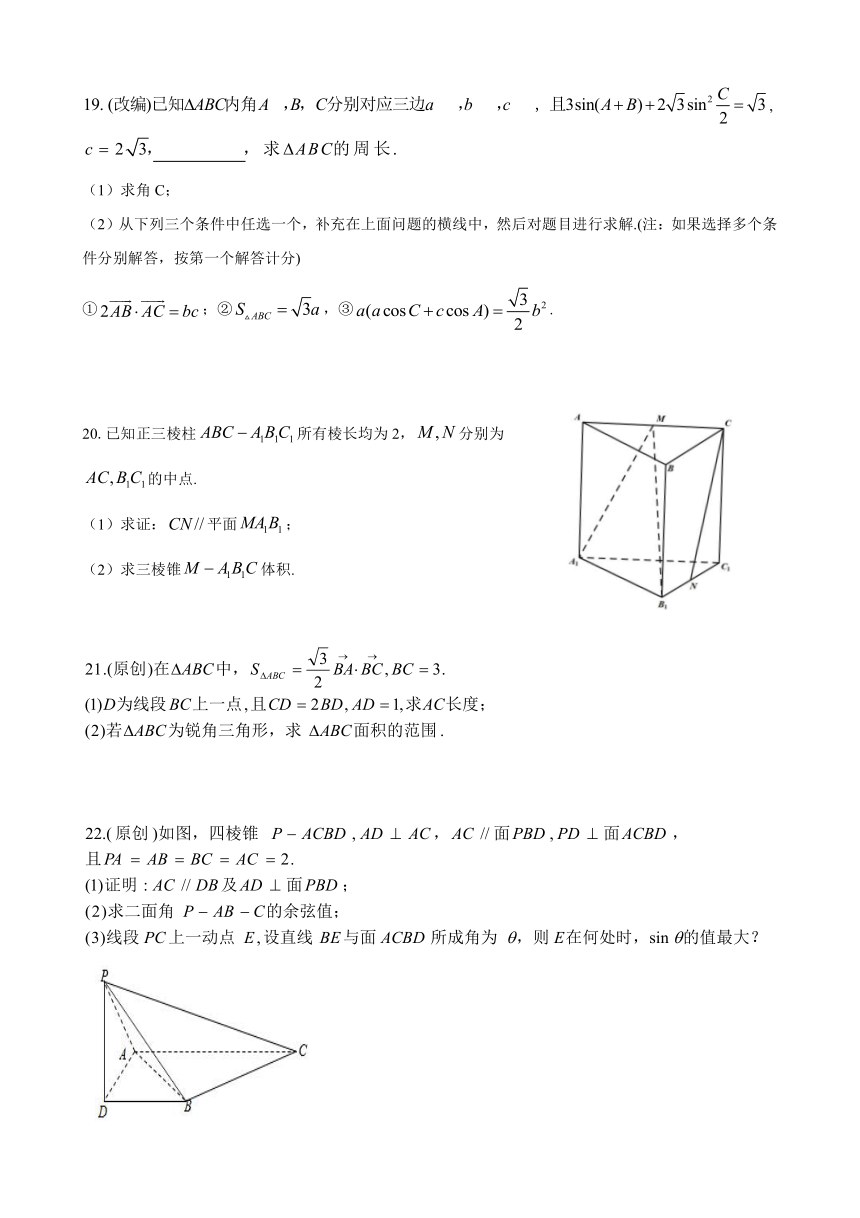 19. (改编)已知ΔABC内角A ,B, C分别对应三边a ,b ,c , 且3sin(A+B)+2√3sin²C/2=√3,
c = 2√3, ________ , 求ΔABC的周长.
（1）求角 C;
（2）从下列三个条件中任选一个，补充在上面问题的横线中，然后对题目进行求解.(注：如果选择多个条
件分别解答，按第一个解答计分)
①2AB→·AC→=bc；②S△ABC=√3a，③a(acosC+ccosA)=√3/2b².
20. 已知正三棱柱ABC−A₁B₁C₁所有棱长均为 2，M,N分别为
AC,B₁C₁的中点.
（1）求证：CN//平面MA₁B₁；
（2）求三棱锥M−A₁B₁C体积.
A
M
C
B
A₁
C₁
N
B₁
21.(原创)在ΔABC中，SΔABC=√3/2BA→·BC→,BC=3.
(1)D为线段BC上一点,且CD=2BD,AD=1,求AC长度;
(2)若ΔABC为锐角三角形，求 ΔABC面积的范围.
22.(原创)如图，四棱锥 P−ACBD,AD⊥AC，AC//面PBD,PD⊥面ACBD，
且PA=AB=BC=AC=2.
(1)证明:AC//DB及AD⊥面PBD；
(2)求二面角 P−AB−C的余弦值;
(3)线段PC上一动点 E,设直线 BE与面ACBD所成角为 θ，则E在何处时，sinθ的值最大?
P
A
C
D
B